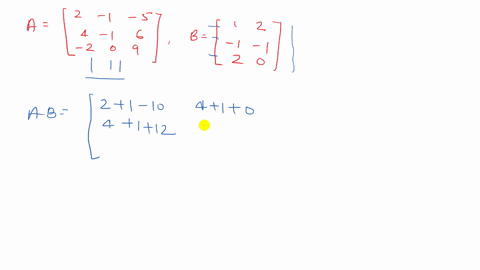 A = [ 2 -1 -5
4 -1 6
-2 0 9 ] , B = [ 1 2
-1 -1
2 0 ]
AB = [ 2+1-10 4+1+0
4+1+12